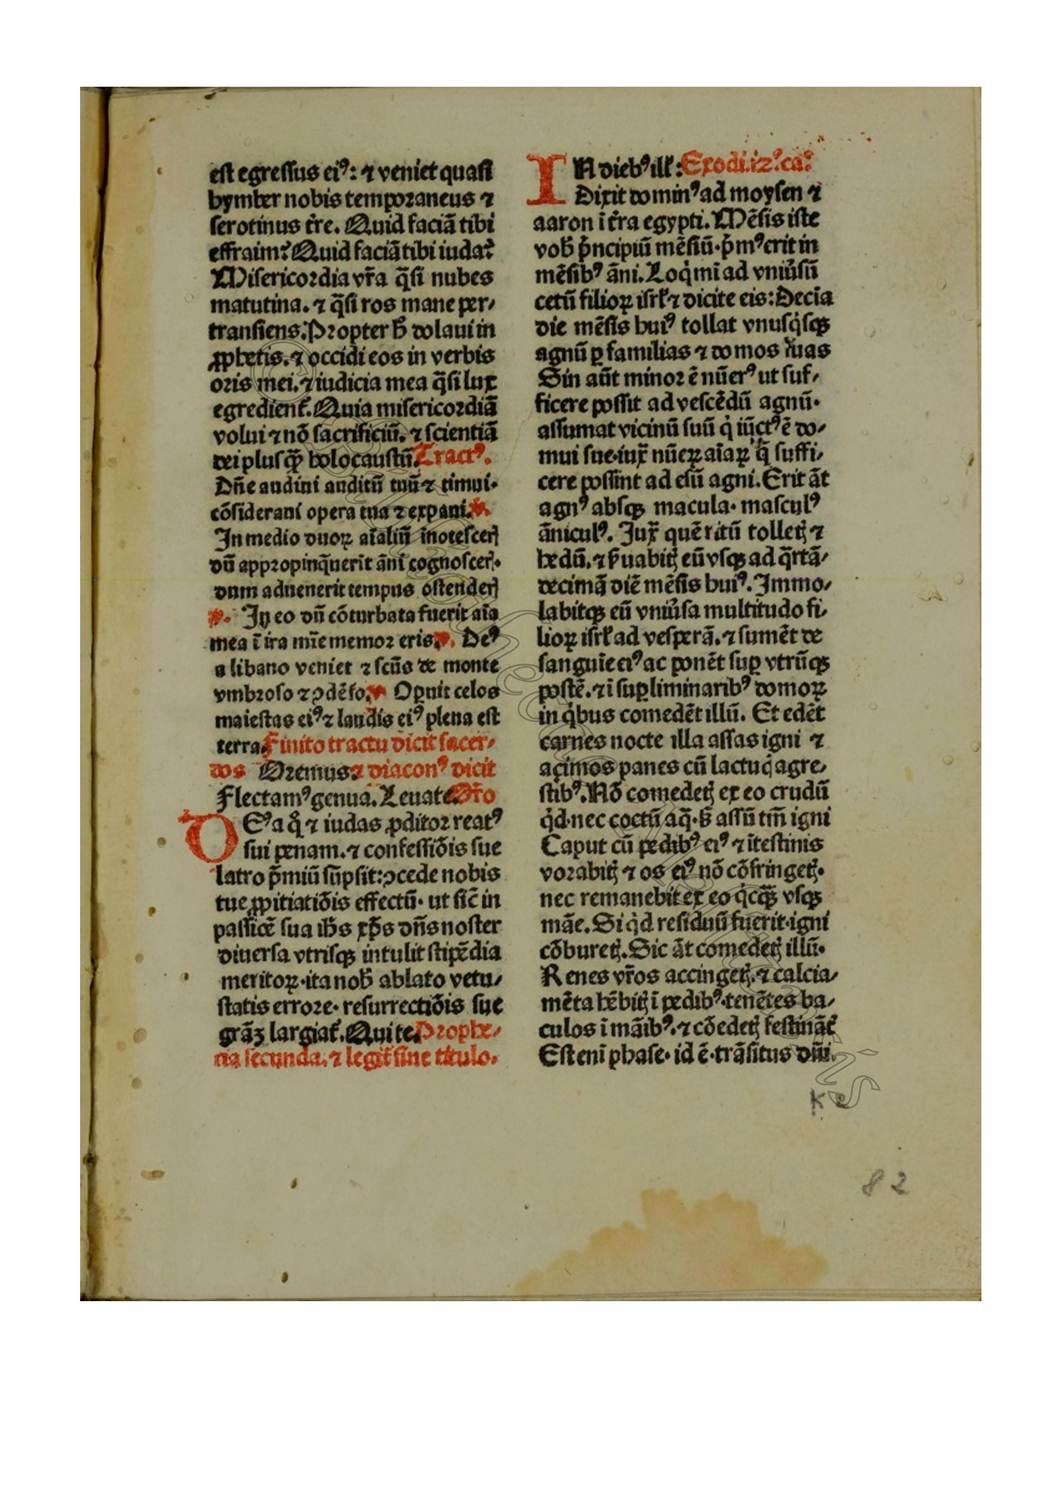 est egressus ei⁹: ⁊ veniet quasi
hymber nobis temporaneus ⁊
serotinus t̄re. Quid faciā tibi
effraim? Quid faciā tibi iuda?
Misericordia vr̄a q̄si nubes
matutina. ⁊ q̄si ros mane per⸗
transiens. Propter ḣ dolaui in
ꝓphetis. ⁊ occidi eos in verbis
oris mei. ⁊ iudicia mea q̄si lux
egredient̄. Quia misericordiā
volui ⁊ nō sacrificiū. ⁊ scientiā
dei plusq̄ꝫ holocaustū. Tract⁹.
Dn̄e audiui auditū tuū ⁊ timui·
cōsideraui opera tua ⁊ expaui. ℣
In medio duoꝝ aīaliū inotescerꝭ
dū appropinq̄uerit āni cognoscerꝭ.
dum aduenerit tempus ostenderꝭ
℣. In eo dū cōturbata fuerit aīa
mea ī ira mīe memor eris. ℣. De⁹
a libano veniet ⁊ scūs de monte
vmbroso ⁊ ꝯdēso. ℣ Oꝑuit celos
maiestas ei⁹ ⁊ laudis ei⁹ plena est
terra. Finito tractu dicit sacer⸗
dos Oremus: ⁊ diacon⁹ dicit
Flectam⁹ genua. Leuate. Or̄o
DE⁹ a q̊ ⁊ iudas ꝓditor reat⁹
sui penam. ⁊ confessiōis sue
latro p̄miū sūpsit: ꝯcede nobis
tue ꝓpitiatiōis effectū· ut sic̄ in
passiōe sua ih̄s xp̄s dn̄s noster
diuersa vtrisqꝫ intulit stipēdia
meritoꝝ· ita nob̄ ablato vetu⸗
statis errore· resurrectiōis sue
grāꝫ largiat̄. Qui te. Prophe⸗
tia secunda. ⁊ legit̄ sine titulo.
IN dieb⁹ ill̄: Exodi. iz⁹. ca⁰.
Dixit domin⁹ ad moysen ⁊
aaron ī t̄ra egypti. Mēsis iste
vob̄ p̄ncipiū mēsiū· p̄m⁹ erit in
mēsib⁹ āni. Loq̇mī ad vniūsū
cetū filioꝝ isrl̄ ⁊ dicite eis: Decīa
die mēsis hui⁹ tollat vnusq̇sqꝫ
agnū ꝑ familias ⁊ domos suas
Sin aūt minor ē nūer⁹ ut suf⸗
ficere possit ad vescēdū agnū·
assumat vicinū suū q̇ iūct⁹ ē do⸗
mui sue· iux̄ nūeꝝ aīaꝝ q̄ suffi⸗
cere possint ad esū agni. Erit āt
agn⁹ absqꝫ macula· mascul⁹
ānicul⁹. Jux̄ quē ritū tolletꝭ ⁊
hedū. ⁊ s̄uabitꝭ eū vsqꝫ ad q̄rtā⸗
decimā diē mēsis hui⁹. Immo⸗
labitqꝫ eū vniūsa multitudo fi⸗
lioꝝ isrl̄ ad vesperā. ⁊ sumēt de
sanguīe ei⁹ ac ponēt suꝑ vtrūqꝫ
postē. ⁊ ī suꝑliminarib⁹ domoꝝ
in q̇bus comedēt illū. Et edēt
carnes nocte illa assas igni ⁊
açimos panes cū lactuq̇ agre⸗
stib⁹. Nō comedetꝭ ex eo crudū
q̇d· nec coctū aq̄· s̄ assū tm̄ igni
Caput cū pedib⁹ ei⁹ ⁊ ītestinis
vorabitꝭ ⁊ os ei⁹ nō cōfringetꝭ.
nec remanebit ex eo q̇cq̄ꝫ vsqꝫ
māe. Si q̇d residuū fuerit· igni
cōburetꝭ. Sic āt comedetꝭ illū.
Renes vr̄os accingetꝭ. ⁊ calcia⸗
mēta hēbitꝭ ī pedib⁹· tenētes ba⸗
culos ī māib⁹. ⁊ cōedetꝭ festināt̄
Est eni phase· id ē· trāsitus dn̄i.
K 2
82